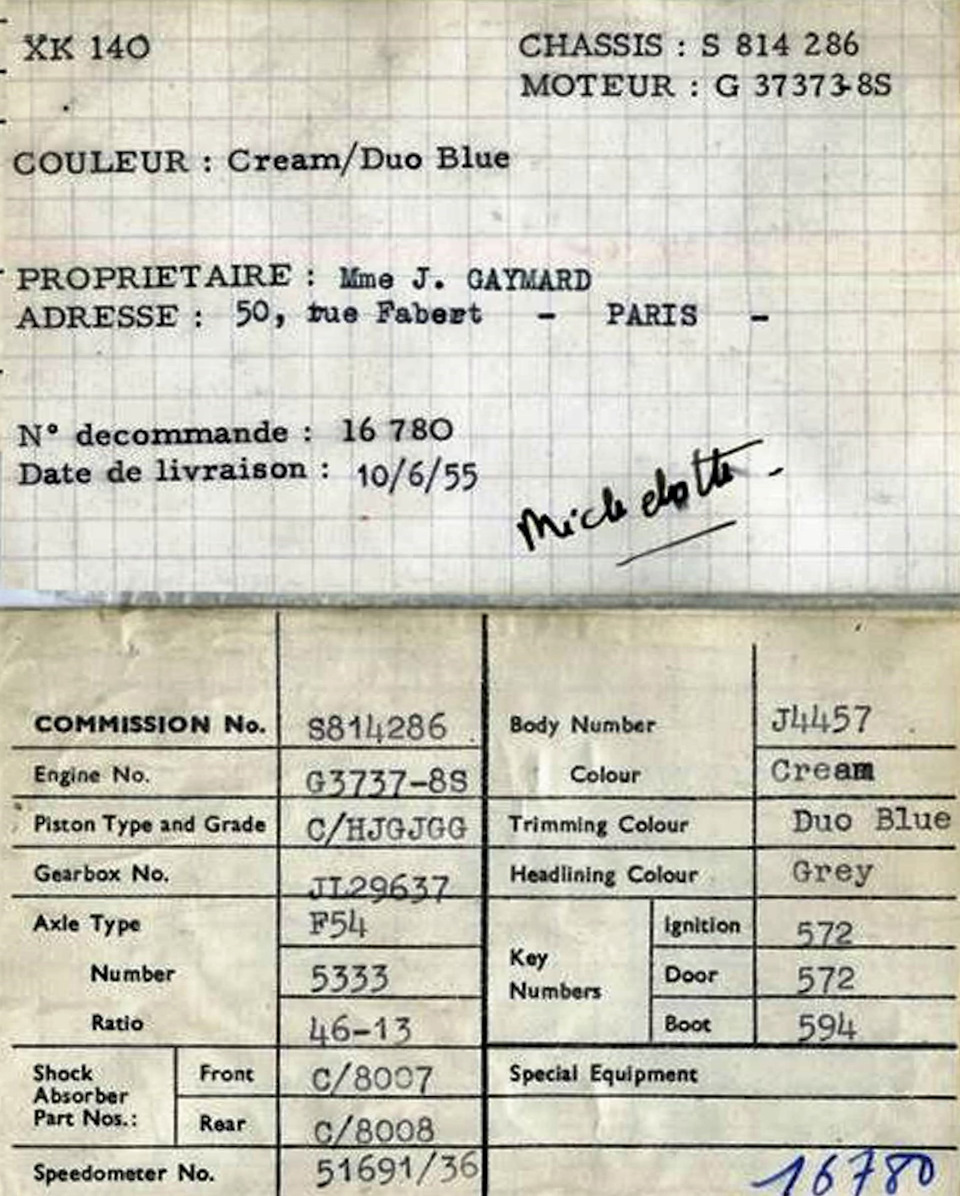 XK 140
CHASSIS : S 814 286
MOTEUR : G 37373-8S
COULEUR : Cream/Duo Blue
PROPRIETAIRE : Mme J. GAYMARD
ADRESSE : 50, rue Fabert - PARIS -
N° decommande : 16 780
Date de livraison : 10/6/55
Michelotti -
COMMISSION No. S814286
Engine No. G3737-8S
Piston Type and Grade C/HJGJGG
Gearbox No. JL29637
Axle Type F54
Number 5333
Ratio 46-13
Shock Absorber Part Nos.: Front C/8007
Rear C/8008
Speedometer No. 51691/36
Body Number J4457
Colour Cream
Trimming Colour Duo Blue
Headlining Colour Grey
Key Numbers Ignition 572
Door 572
Boot 594
Special Equipment
16780